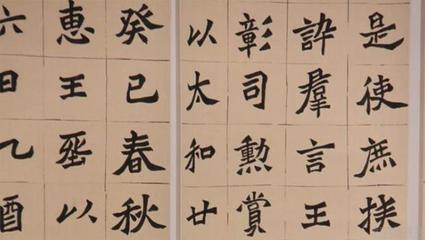 是使庶族
訊羣言王
彰司勳賞
以太和廿
癸巳春秋
惠王塟以
六日乙酉